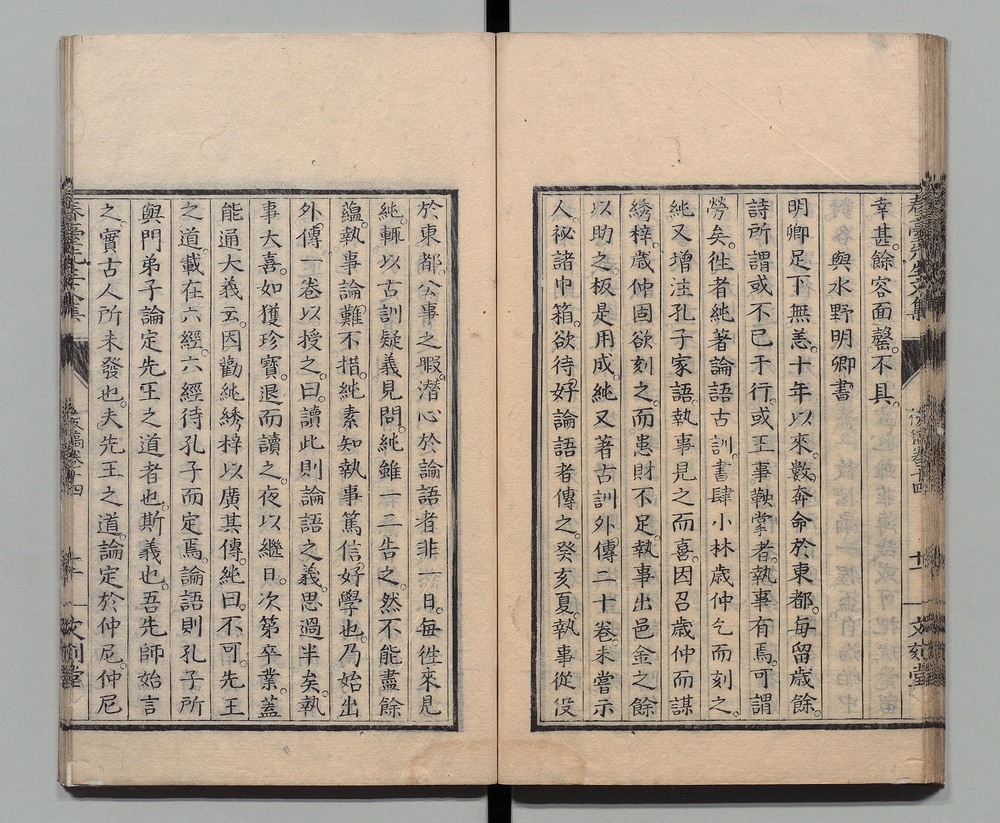 幸甚。餘容面罄。不具。
與水野明卿書
明卿足下無恙。十年以來。數奔命於東都。每留歲餘。
詩所謂或不已于行。或王事鞅掌者。執事有焉。可謂
勞矣。往者純著論語古訓。書肆小林歲仲乞而刻之。
純又增注孔子家語。執事見之而喜。因召歲仲而謀
綉梓。歲仲固欲刻之。而患財不足。執事出邑金之餘
以助之。板是用成。純又著古訓外傳二十卷。未嘗示
人。祕諸巾箱。欲待好論語者傳之。癸亥夏。執事從役
於東都。公事之暇。潛心於論語者非一日。每往來見
純。輒以古訓疑義見問。純雖一二告之。然不能盡餘
蘊。執事論難不措。純素知執事篤信好學也。乃始出
外傳一卷以授之。曰。讀此則論語之義。思過半矣。執
事大喜。如獲珍寶。退而讀之。夜以繼日。次第卒業。蓋
能通大義云。因勸純綉梓以廣其傳。純曰。不可。先王
之道。載在六經。六經待孔子而定焉。論語則孔子所
與門弟子論定先王之道者也。斯義也。吾先師始言
之。實古人所未發也。夫先王之道。論定於仲尼。仲尼